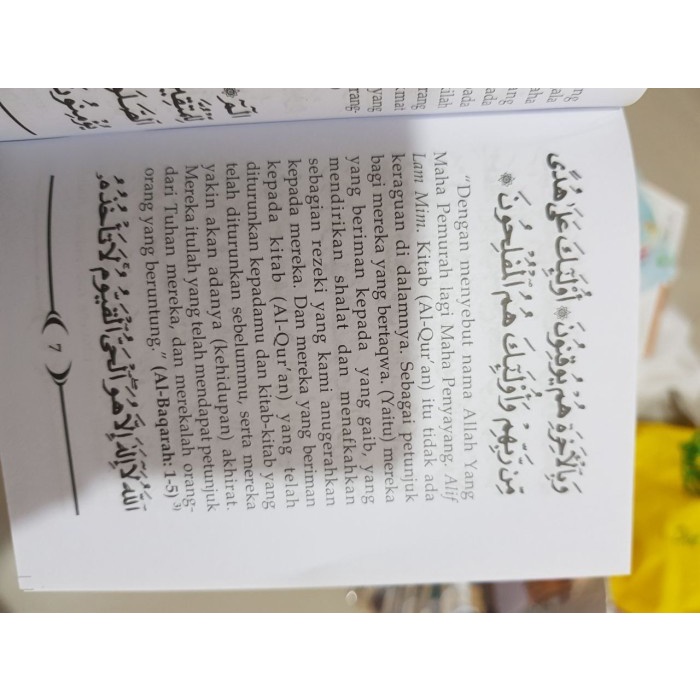 وَبِالْآخِرَةِ هُمْ يُوقِنُونَ ۞ أُولَٰئِكَ عَلَىٰ هُدًى
مِّن رَّبِّهِمْ وَأُولَٰئِكَ هُمُ الْمُفْلِحُونَ ۞
“Dengan menyebut nama Allah Yang
Maha Pemurah lagi Maha Penyayang. Alif
Lam Mim. Kitab (Al-Qur’an) itu tidak ada
keraguan di dalamnya. Sebagai petunjuk
bagi mereka yang bertaqwa. (Yaitu) mereka
yang beriman kepada yang gaib, yang
mendirikan shalat dan menafkahkan
sebagian rezeki yang kami anugerahkan
kepada mereka. Dan mereka yang beriman
kepada kitab (Al-Qur’an) yang telah
diturunkan kepadamu dan kitab-kitab yang
telah diturunkan sebelummu, serta mereka
yakin akan adanya (kehidupan) akhirat.
Mereka itulah yang telah mendapat petunjuk
dari Tuhan mereka, dan merekalah orang-
orang yang beruntung.” (Al-Baqarah: 1-5) 3)
اللَّهُ لَا إِلَٰهَ إِلَّا هُوَ الْحَيُّ الْقَيُّومُ لَا تَأْخُذُهُ
7